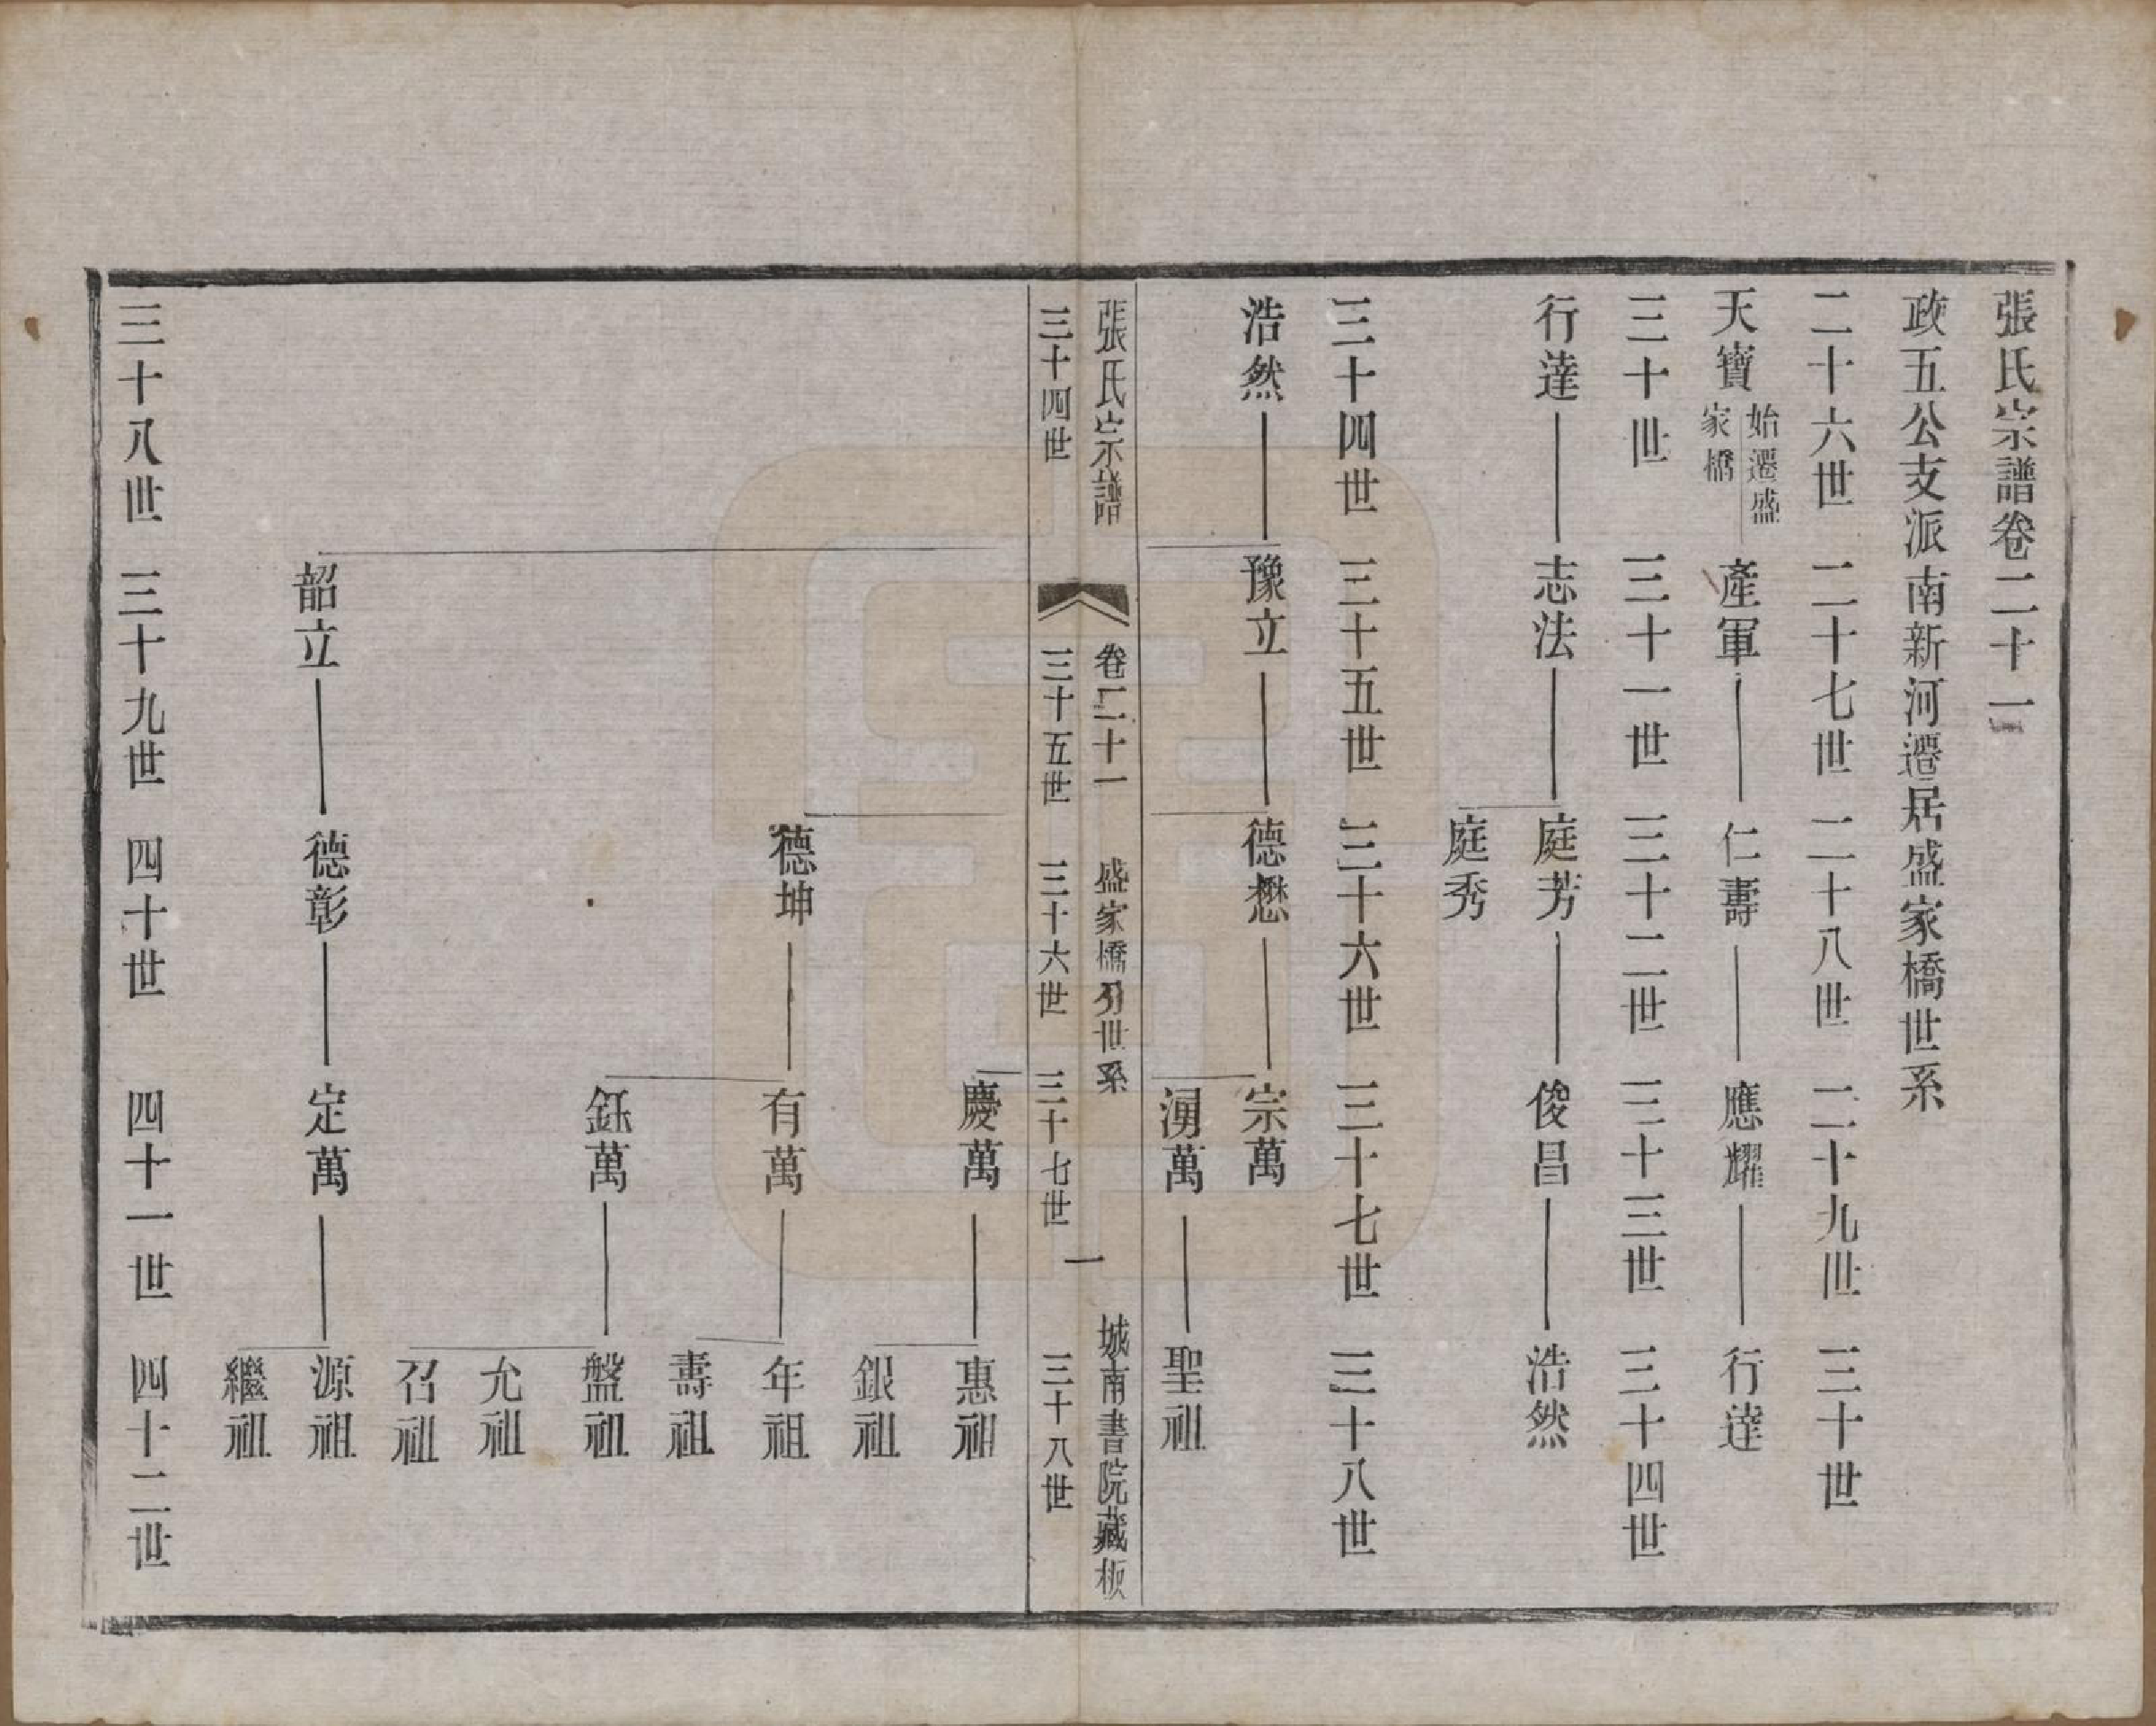 張氏宗譜卷二十一
政五公支派南新河遷居盛家橋世系
二十六世 二十七世 二十八世 二十九世 三十世
天寶 始遷盛家橋 產軍 仁壽 應耀 行達
三十世 三十一世 三十二世 三十三世 三十四世
行達 志法 庭芳 俊昌 浩然
庭秀
三十四世 三十五世 三十六世 三十七世 三十八世
浩然 豫立 德懋 宗萬
湧萬 聖祖
張氏宗譜 卷二十一 盛家橋分世系 一 城南書院藏板
三十四世 三十五世 三十六世 三十七世 三十八世
慶萬 惠祖
銀祖
德坤 有萬 年祖
壽祖
鈺萬 盤祖
允祖
召祖
韶立 德彰 定萬 源祖
繼祖
三十八世 三十九世 四十世 四十一世 四十二世